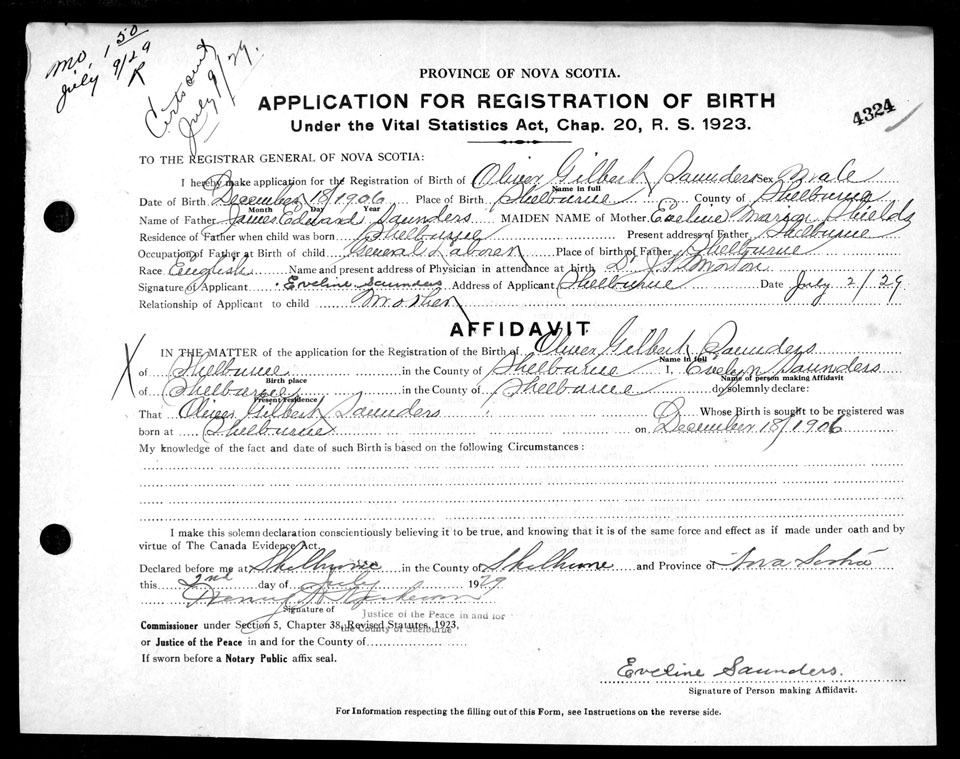 Mo. 1 50
July 9/29
R
Cert sent
July 9/29.
4324
PROVINCE OF NOVA SCOTIA.
APPLICATION FOR REGISTRATION OF BIRTH
Under the Vital Statistics Act, Chap. 20, R. S. 1923.
TO THE REGISTRAR GENERAL OF NOVA SCOTIA:
I hereby make application for the Registration of Birth of Oliver Gilbert Saunders Sex Male
Name in full
Date of Birth December 18/1906 Place of Birth Shelburne County of Shelburne
Month Day Year
Name of Father James Edward Saunders MAIDEN NAME of Mother Eveline Marion Shields
Residence of Father when child was born Shelburne Present address of Father Shelburne
Occupation of Father at Birth of child General Laborer Place of birth of Father Shelburne
Race English Name and present address of Physician in attendance at birth Dr Morton
Signature of Applicant Eveline Saunders Address of Applicant Shelburne Date July 2/29
Relationship of Applicant to child Mother
AFFIDAVIT
X
IN THE MATTER of the application for the Registration of the Birth of Oliver Gilbert Saunders
Name in full
of Shelburne in the County of Shelburne I, Evelyn Saunders
Birth place Name of person making Affidavit
of Shelburne in the County of Shelburne do solemnly declare:
Present residence
That Oliver Gilbert Saunders Whose Birth is sought to be registered was
born at Shelburne on December 18/1906
My knowledge of the fact and date of such Birth is based on the following Circumstances:
I make this solemn declaration conscientiously believing it to be true, and knowing that it is of the same force and effect as if made under oath and by
virtue of The Canada Evidence Act.
Declared before me at Shelburne in the County of Shelburne and Province of Nova Scotia
this 2nd day of July 1929
Signature of
Justice of the Peace in and for
the County of Shelburne
Commissioner under Section 5, Chapter 38, Revised Statutes, 1923,
or Justice of the Peace in and for the County of
If sworn before a Notary Public affix seal.
Eveline Saunders.
Signature of Person making Affidavit.
For Information respecting the filling out of this Form, see Instructions on the reverse side.